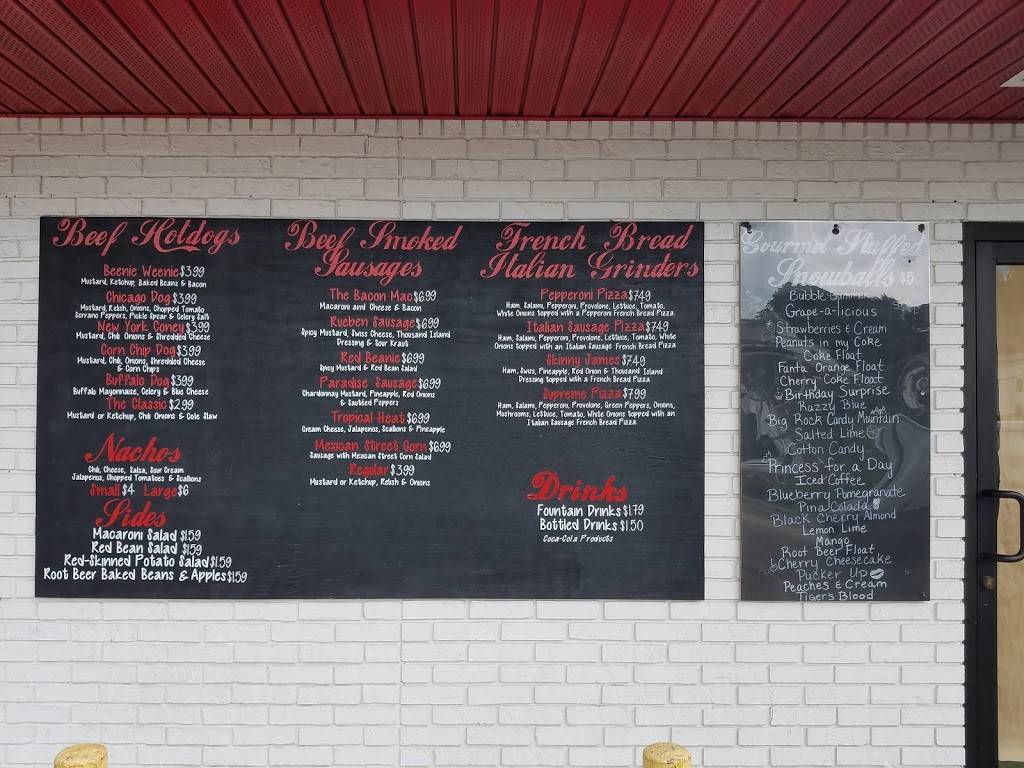 Beef Hotdogs
Beenie Weenie $3.99
Mustard, Ketchup, Baked Beans & Bacon
Chicago Dog $3.99
Mustard, Relish, Onions, Chopped Tomato
Serrano Peppers, Pickle Spear & Celery Salt
New York Coney $3.99
Mustard, Chili Onions & Shredded Cheese
Corn Chip Dog $3.99
Mustard, Chili, Onions, Shredded Cheese
& Corn Chips
Buffalo Dog $3.99
Buffalo Mayonnaise, Celery & Blue Cheese
The Classic $2.99
Mustard or Ketchup, Chili Onions & Cole Slaw
Nachos
Chili, Cheese, Salsa, Sour Cream
Jalapenos, Chopped Tomatoes & Scallions
Small $4 Large $6
Sides
Macaroni Salad $1.59
Red Bean Salad $1.59
Red-Skinned Potato Salad $1.59
Root Beer Baked Beans & Apples $1.59
Beef Smoked
Sausages
The Bacon Mac $6.99
Macaroni and Cheese & Bacon
Rueben Sausage $6.99
Spicy Mustard, Swiss Cheese, Thousand Island
Dressing & Sour Kraut
Red Beanie $6.99
Spicy Mustard & Red Bean Salad
Paradise Sausage $6.99
Chardonnay Mustard, Pineapple, Red Onions
& Sautéed Peppers
Tropical Heat $6.99
Cream Cheese, Jalapenos, Scallions & Pineapple
Mexican Street Corn $6.99
Sausage with Mexican Street Corn Salad
Regular $3.99
Mustard or Ketchup, Relish & Onions
French Bread
Italian Grinders
Pepperoni Pizza $7.49
Ham, Salami, Pepperoni, Provolone, Lettuce, Tomato,
White Onions topped with a Pepperoni French Bread Pizza
Italian Sausage Pizza $7.49
Ham, Salami, Pepperoni, Provolone, Lettuce, Tomato, White
Onions topped with an Italian Sausage French Bread Pizza
Skinny James $7.49
Ham, Swiss, Pineapple, Red Onion & Thousand Island
Dressing topped with a French Bread Pizza
Supreme Pizza $7.99
Ham, Salami, Pepperoni, Provolone, Green Peppers, Onions,
Mushrooms, Lettuce, Tomato, White Onions topped with an
Italian Sausage French Bread Pizza
Drinks
Fountain Drinks $1.79
Bottled Drinks $1.50
Coca-Cola Products
Gourmet Stuffed
Snowballs $5
Bubble Gummer
Grape-a-licious
Strawberries & Cream
Peanuts in my Coke
Coke Float
Fanta Orange Float
Cherry Coke Float
Birthday Surprise
Razzy Blue
Big Rock Candy Mountain
Salted Lime
Cotton Candy
Princess for a Day
Iced Coffee
Blueberry Pomegranate
Pina Colada
Black Cherry Almond
Lemon Lime
Mango
Root Beer Float
Cherry Cheesecake
Pucker Up
Peaches & Cream
Tigers Blood